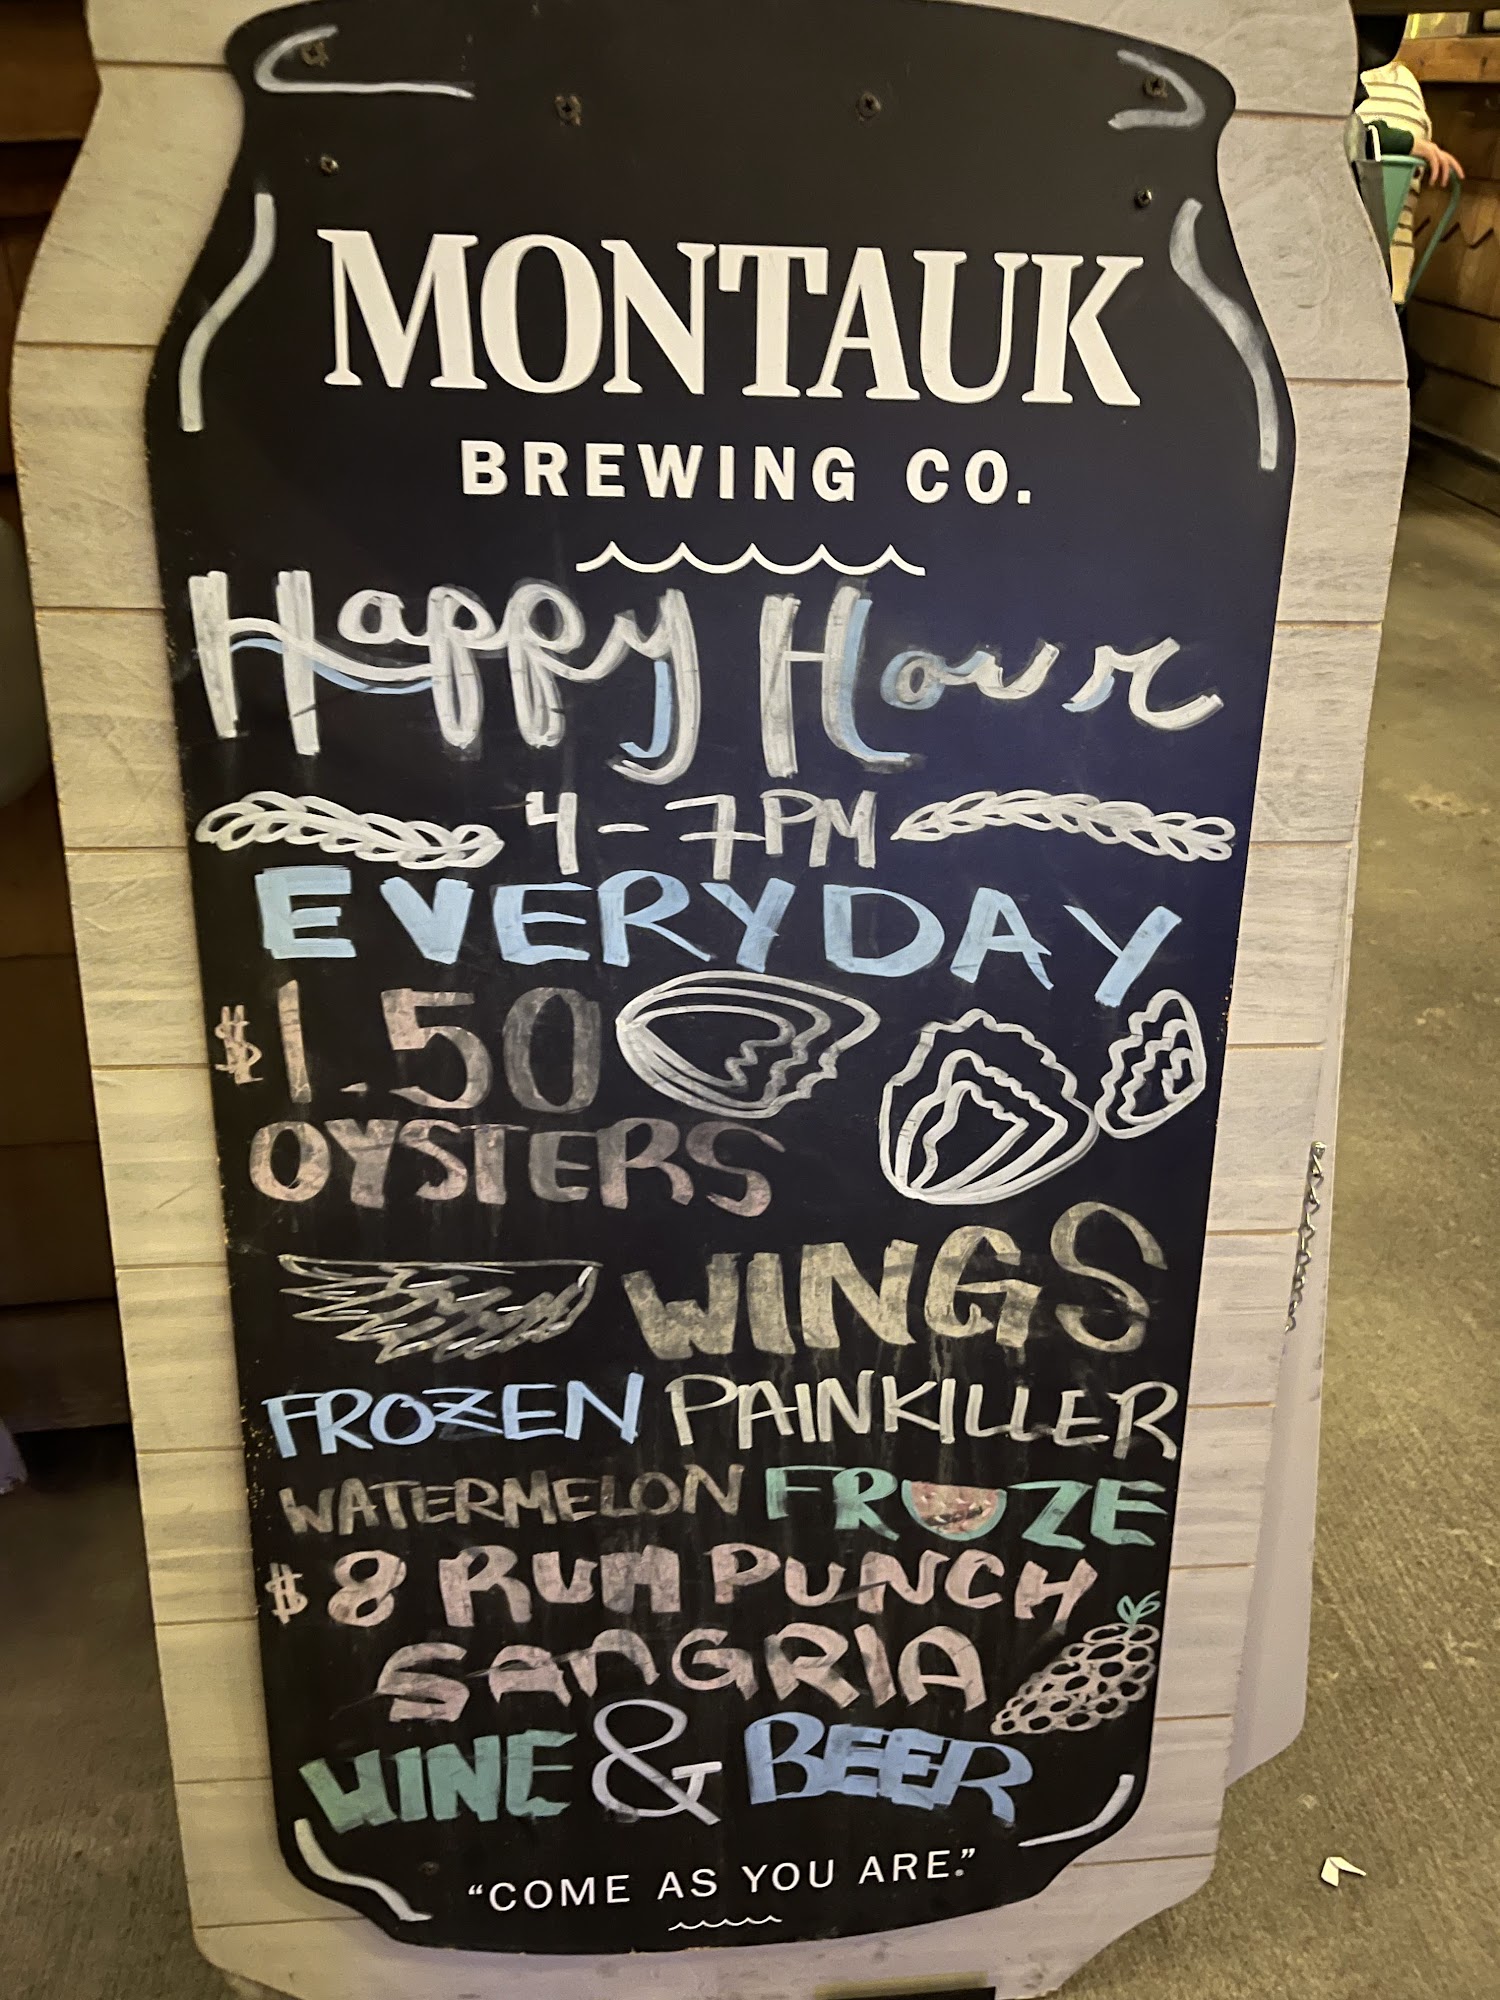 MONTAUK
BREWING CO.
Happy Hour
4-7PM
EVERYDAY
$1.50
OYSTERS
WINGS
FROZEN PAINKILLER
WATERMELON FROZE
$8 RUM PUNCH
SANGRIA
WINE & BEER
"COME AS YOU ARE."